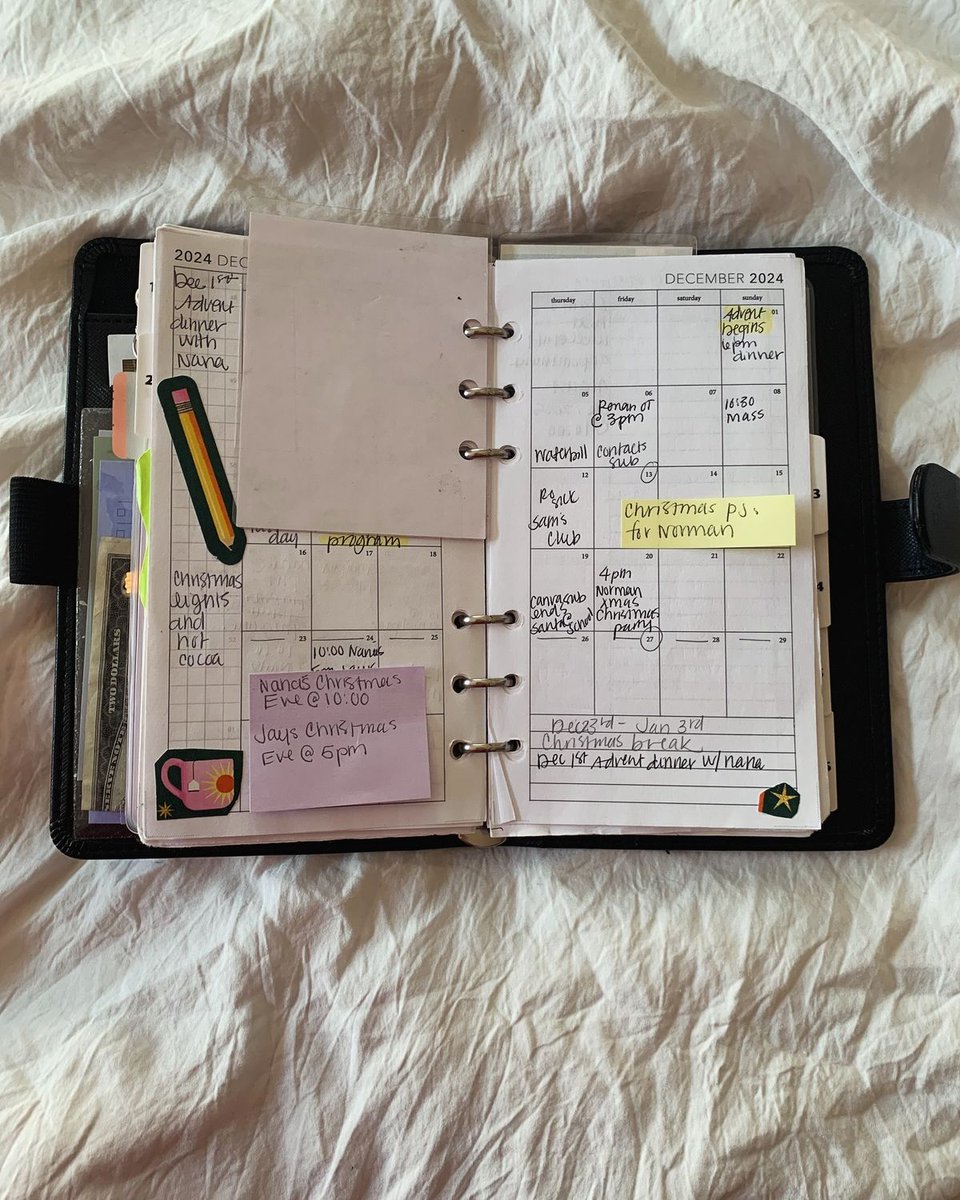 2024 DEC
Dec 1st
Advent
dinner
with
Nana
2
day
program
16
17
18
Christmas
lights
and
hot
cocoa
23
24
25
10:00 Nanas
Nana's Christmas
Eve @ 10:00
Jays Christmas
Eve @ 5pm
TWO DOLLARS
DECEMBER 2024
thursday friday saturday sunday
01
Advent
begins
6pm
dinner
05
waterbill
06
Ronan OT
@ 3pm
contacts
sub
07
08
10:30
Mass
12
sick
Sam's
club
13
14
15
Christmas PJs
for Norman
19
canva sub
ends
santa@school
20
4pm
Norman
xmas
Christmas
party
21
22
26
27
28
29
Dec 23rd - Jan 3rd
Christmas break
Dec 1st Advent dinner w/ nana
3
4